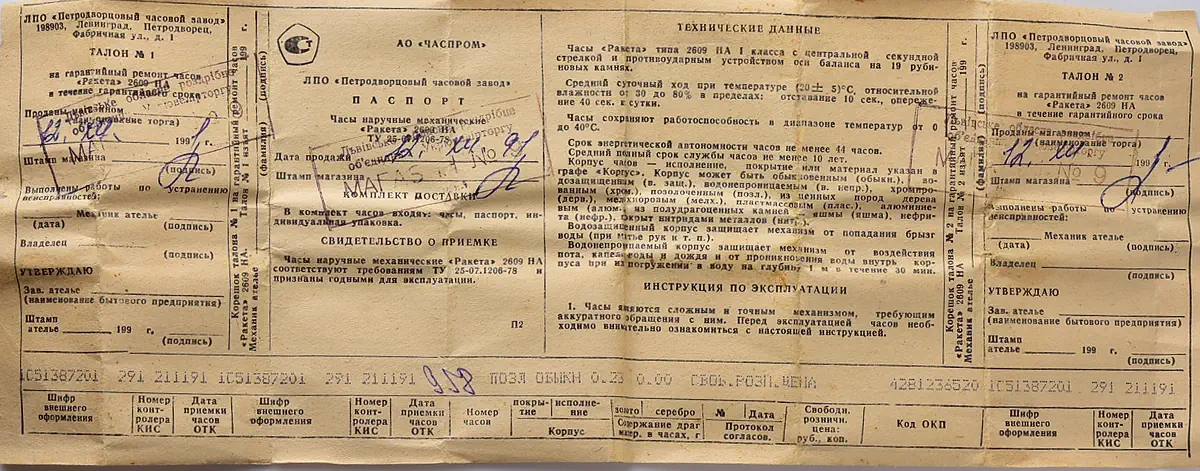 ЛПО «Петродворцовый часовой завод»
198903, Ленинград, Петродворец,
Фабричная ул., д. 1
ТАЛОН № 1
на гарантийный ремонт часов
«Ракета» 2609 НА
в течение гарантийного срока
Проданы магазином
(наименование торга)
12. XII. 199 г.
Штамп магазина
(подпись)
Выполнены работы по устранению
неисправностей:
Механик ателье
(дата) (подпись)
Владелец
(подпись)
УТВЕРЖДАЮ
Зав. ателье
(наименование бытового предприятия)
Штамп
ателье 199 г.
(подпись)
Корешок талона № 1 на гарантийный ремонт часов
«Ракета» 2609 НА. Талон № 1 изъят 199 г.
Механик ателье (фамилия) (подпись)
АО «ЧАСПРОМ»
ЛПО «Петродворцовый часовой завод»
ПАСПОРТ
Часы наручные механические
«Ракета» 2609 НА
ТУ 25-07.1206-78
Дата продажи 12. XII. 91
Штамп магазина
МАГАЗ № 9
КОМПЛЕКТ ПОСТАВКИ
В комплект часов входят: часы, паспорт, ин-
дивидуальная упаковка.
СВИДЕТЕЛЬСТВО О ПРИЕМКЕ
Часы наручные механические «Ракета» 2609 НА
соответствуют требованиям ТУ 25-07.1206-78 и
признаны годными для эксплуатации.
П2
ТЕХНИЧЕСКИЕ ДАННЫЕ
Часы «Ракета» типа 2609 НА I класса с центральной секундной
стрелкой и противоударным устройством оси баланса на 19 руби-
новых камнях.
Средний суточный ход при температуре (20± 5)°С, относительной
влажности от 30 до 80% в пределах: отставание 10 сек., опереже-
ние 40 сек. в сутки.
Часы сохраняют работоспособность в диапазоне температур от 0
до 40°С.
Срок энергетической автономности часов не менее 44 часов.
Средний полный срок службы часов не менее 10 лет.
Корпус часов — исполнение, покрытие или материал указан в
графе «Корпус». Корпус может быть обыкновенным (обыкн.), во-
дозащищенным (в. защ.), водонепроницаемым (в. непр.), хромиро-
ванным (хром.), позолоченным (позл.), из ценных пород дерева
(дерв.), мельхиоровым (мелх.), пластмассовым (плас.), алюминие-
вым (алюм.), из полудрагоценных камней — яшмы (яшма), нефри-
та (нефр.), покрыт нитридами металлов (нит.).
Водозащищенный корпус защищает механизм от попадания брызг
воды (при мытье рук и т. п.).
Водонепроницаемый корпус защищает механизм от воздействия
пота, капель воды и дождя и от проникновения воды внутрь кор-
пуса при их погружении в воду на глубину 1 м в течение 30 мин.
ИНСТРУКЦИЯ ПО ЭКСПЛУАТАЦИИ
1. Часы являются сложным и точным механизмом, требующим
аккуратного обращения с ним. Перед эксплуатацией часов необ-
ходимо внимательно ознакомиться с настоящей инструкцией.
Корешок талона № 2 на гарантийный ремонт часов
«Ракета» 2609 НА Талон № 2 изъят 199 г.
Механик ателье (фамилия) (подпись)
ЛПО «Петродворцовый часовой завод»
198903, Ленинград, Петродворец,
Фабричная ул., д. 1
ТАЛОН № 2
на гарантийный ремонт часов
«Ракета» 2609 НА
в течение гарантийного срока
Проданы магазином
(наименование торга)
12. XII 199 г.
Штамп магазина
№ 9
(подпись)
Выполнены работы по устранению
неисправностей:
Механик ателье
(дата) (подпись)
Владелец
(подпись)
УТВЕРЖДАЮ
Зав. ателье
(наименование бытового предприятия)
Штамп
ателье 199 г.
(подпись)
1С51387201 291 211191 1С51387201 291 211191 958 ПОЗЛ ОБЫКН 0.23 0.00 СВОБ.РОЗН.ЦЕНА 4281236520 1С51387201 291 211191
Шифр внешнего оформления
Номер контролера КИС
Дата приемки часов ОТК
Шифр внешнего оформления
Номер контролера КИС
Дата приемки часов ОТК
Номер часов
покрытие исполнение
Корпус
золото серебро
Содержание драг. метер. в часах, г
№ Дата
Протокол согласов.
Свободн. розничн. цена: руб., коп.
Код ОКП
Шифр внешнего оформления
Номер контролера КИС
Дата приемки часов ОТК